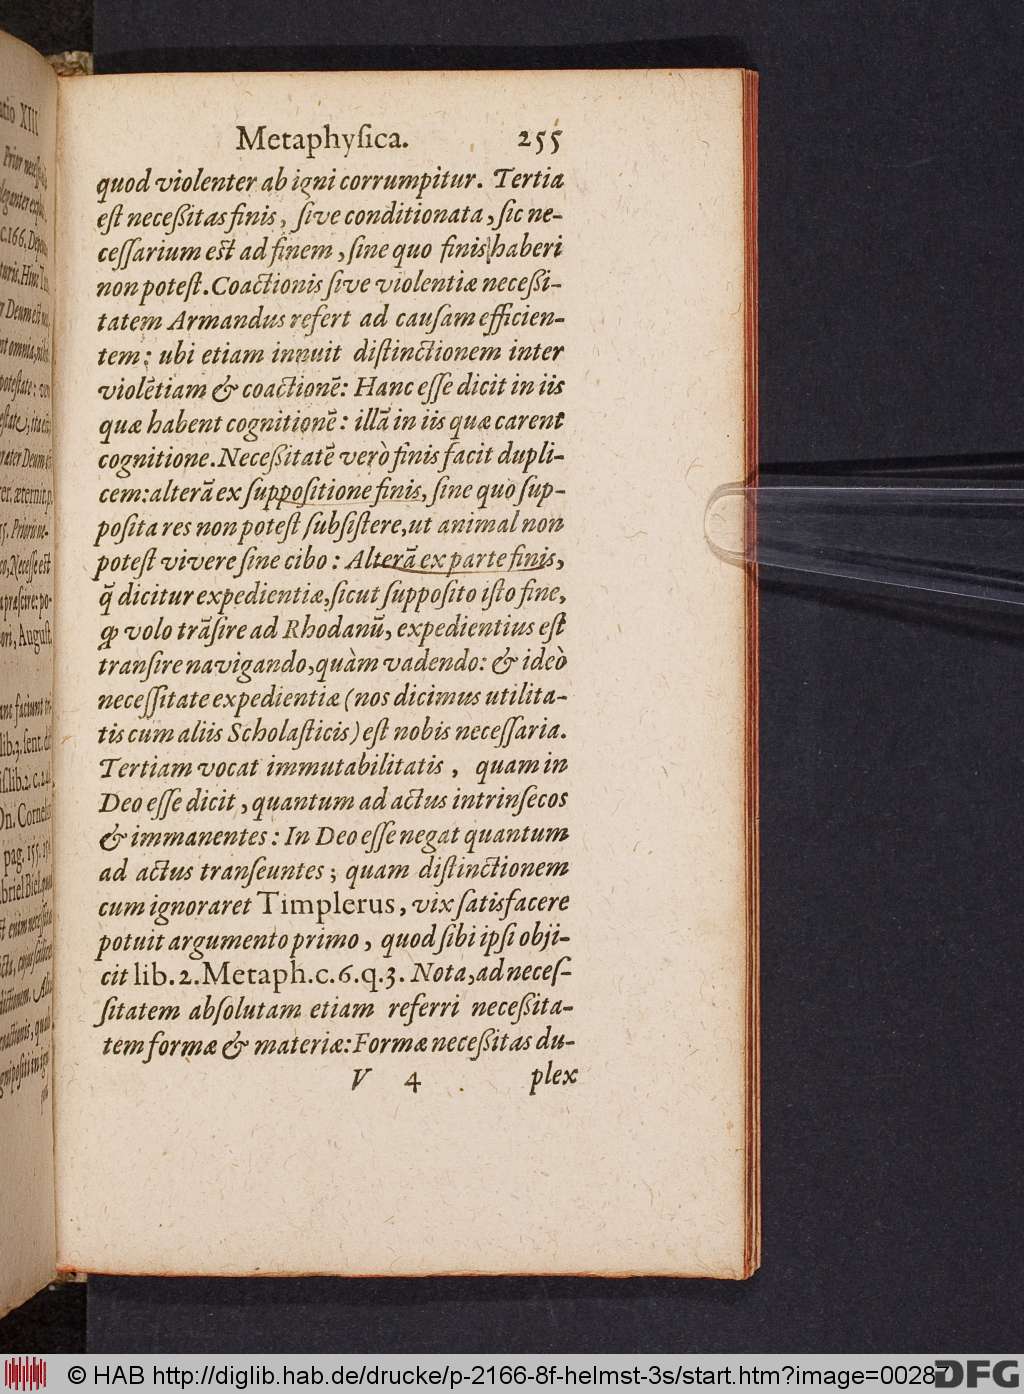 Metaphyſica. 255
quod violenter ab igni corrumpitur. Tertia
eſt neceßitas finis, ſive conditionata, ſic ne-
ceſſarium eſt ad finem, ſine quo finis haberi
non poteſt. Coactionis ſive violentiæ neceßi-
tatem Armandus refert ad cauſam efficien-
tem: ubi etiam innuit diſtinctionem inter
violẽtiam & coactionẽ: Hanc eſſe dicit in iis
quæ habent cognitionẽ: illã in iis quæ carent
cognitione. Neceßitatẽ verò finis facit dupli-
cem: alterã ex ſuppoſitione finis, ſine quo ſup-
poſita res non poteſt ſubſiſtere, ut animal non
poteſt vivere ſine cibo: Alterã ex parte finis,
q̃ dicitur expedientiæ, ſicut ſuppoſito iſto fine,
ꝙ volo trãſire ad Rhodanũ, expedientius eſt
tranſire navigando, quàm vadendo: & ideò
neceſſitate expedientiæ (nos dicimus utilita-
tis cum aliis Scholaſticis) eſt nobis neceſſaria.
Tertiam vocat immutabilitatis, quam in
Deo eſſe dicit, quantum ad actus intrinſecos
& immanentes: In Deo eſſe negat quantum
ad actus tranſeuntes; quam diſtinctionem
cum ignoraret Timplerus, vix ſatisfacere
potuit argumento primo, quod ſibi ipſi obji-
cit lib. 2. Metaph. c. 6. q. 3. Nota, ad neceſ-
ſitatem abſolutam etiam referri neceßita-
tem formæ & materiæ: Formæ neceßitas du-
V 4 plex
© HAB http://diglib.hab.de/drucke/p-2166-8f-helmst-3s/start.htm?image=00287
DFG